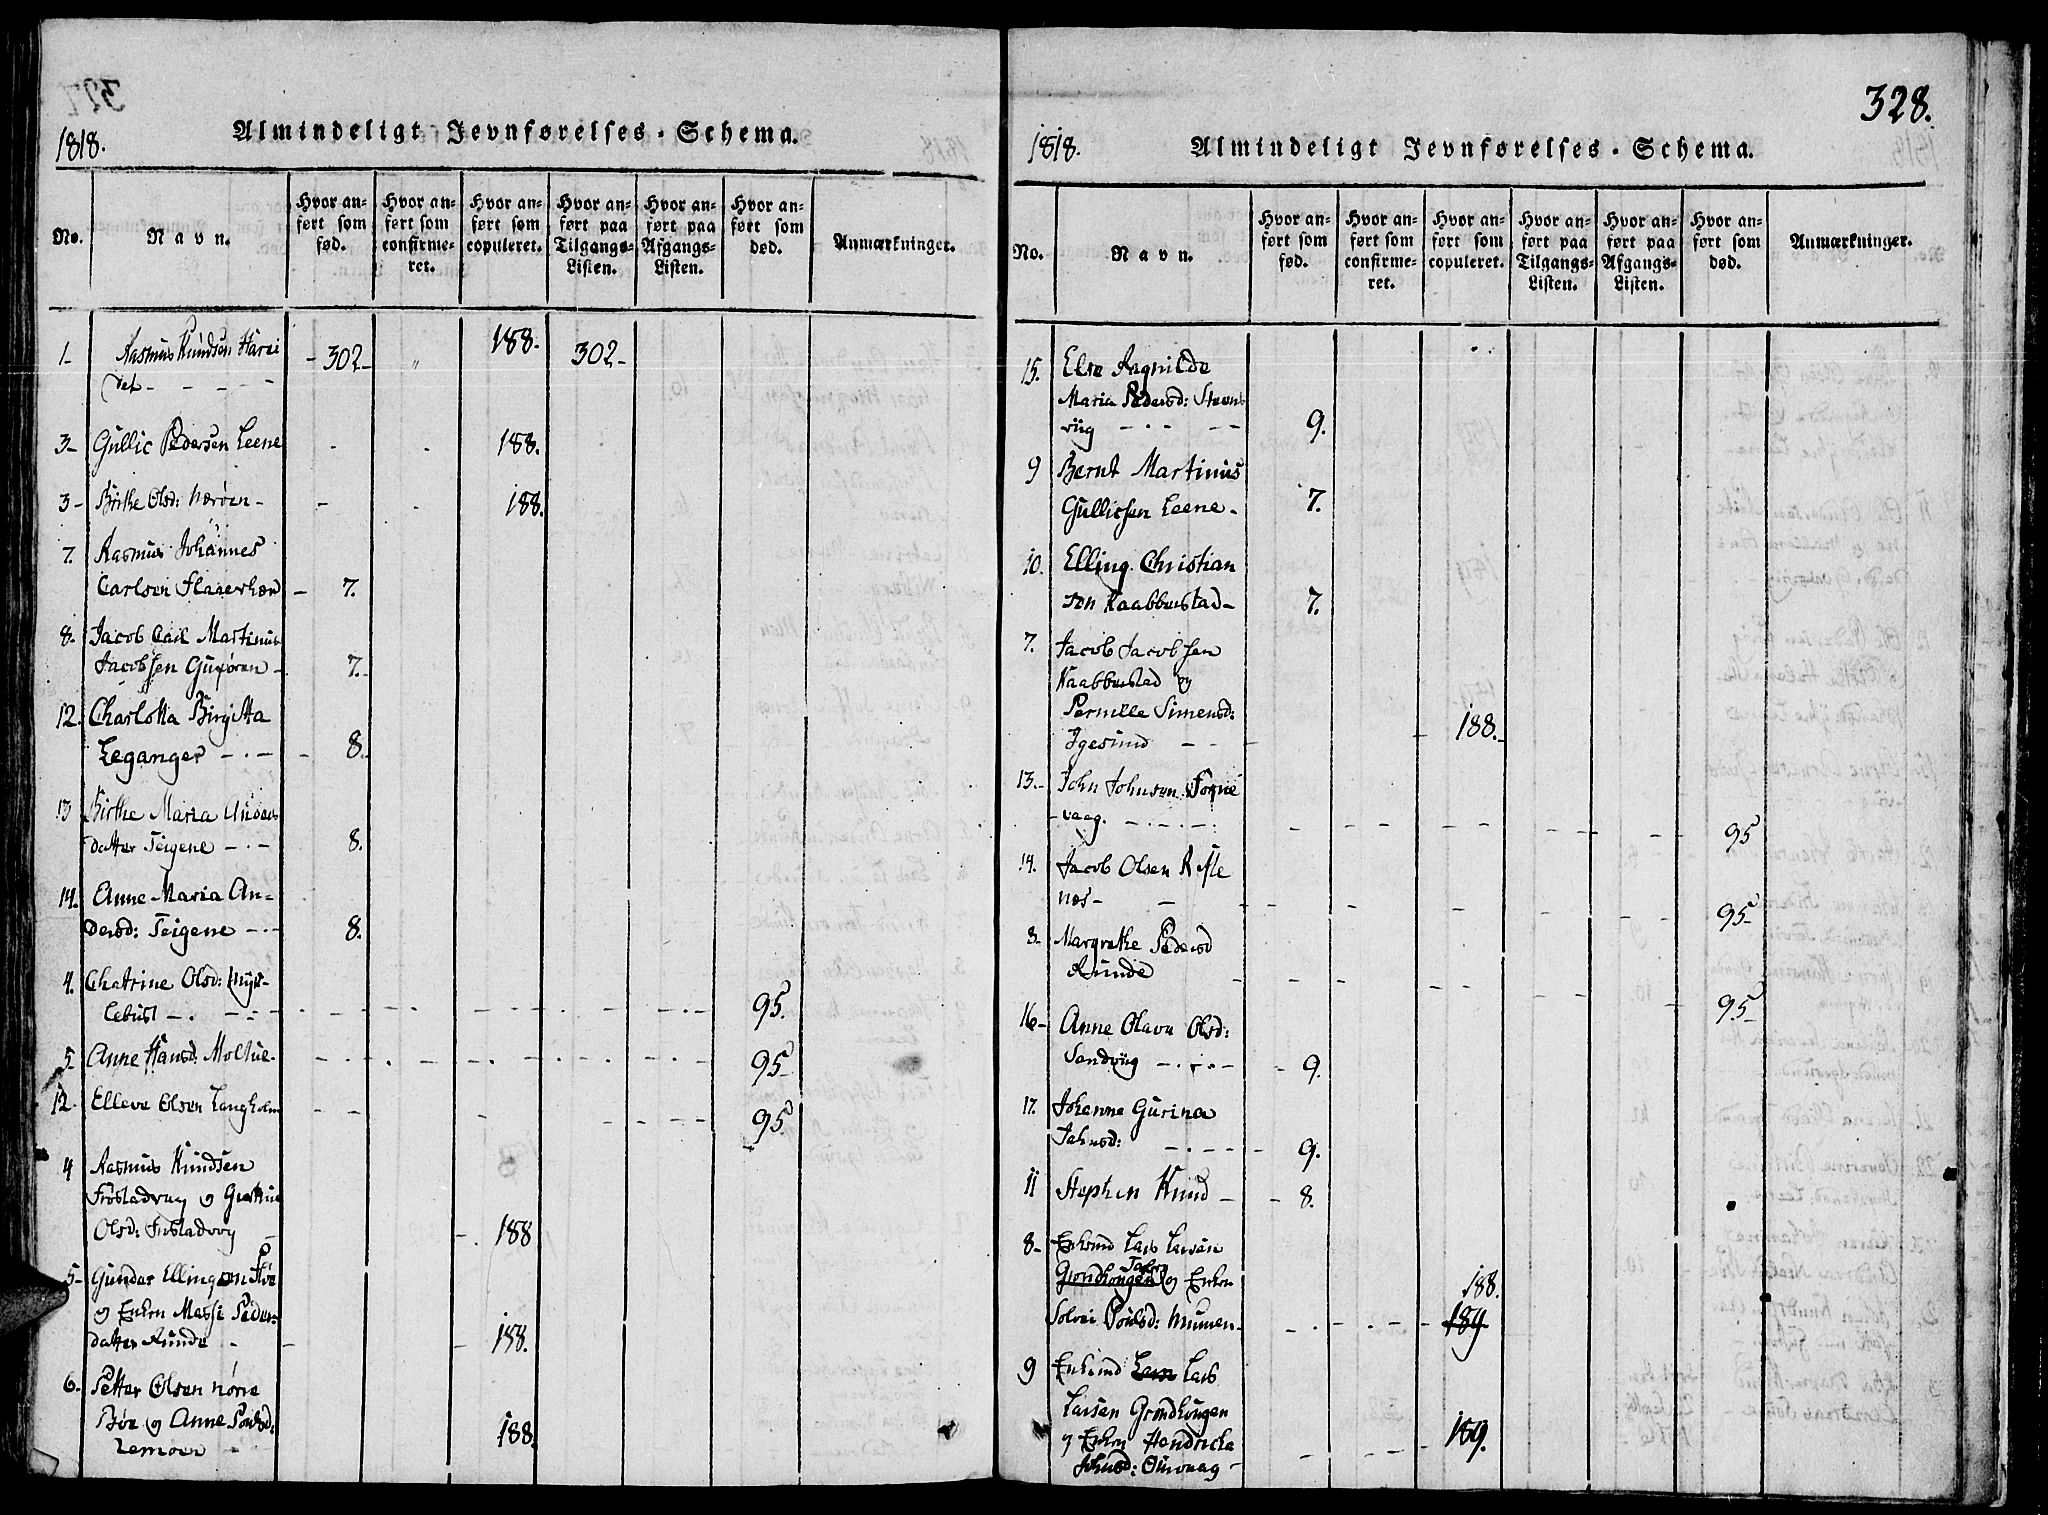 1818.
Almindeligt Jevnførelses-Schema.
No.
Navn.
Hvor anført som fød.
Hvor anført som confirmeret.
Hvor anført som copuleret.
Hvor anført paa Tilgangs-Listen.
Hvor anført paa Afgangs-Listen.
Hvor anført som død.
Anmærkninger.
1- Rasmus Knudsen Harei
det - - - - - 302- " 188. 302-
3- Gullic Pedersen Leene - . 188.
3- Birthe Olsd: Nærøen- - . 188.
7. Rasmus Johannes
Carlsen - 7.
8. Jacob Carl Martinus
Jacobsen - 7.
12. Charlotta Birgitta
Leganger - . - - 8.
13 Birthe Maria
datter Teigene - . - 8.
14. Anne Maria An-
dersd: Teigene - . - 8.
4. Chatrine Olsd: Myk-
lebust - . - 95.
5 Anne Hansd: Moltue. 95-
12- Elleve Olsen Langholm 95
4 Rasmus Knudsen
Frøstadvug og
Olsd: - 188
5- Gunder Ellingsen
og Enken Massi Peders-
datter Runde - 188.
6. Petter Olsen Nørre
Bøe og Anne Poulsd:
- 188.
328.
1818.
Almindeligt Jevnførelses-Schema.
No.
Navn.
Hvor anført som fød.
Hvor anført som confirmeret.
Hvor anført som copuleret.
Hvor anført paa Tilgangs-Listen.
Hvor anført paa Afgangs-Listen.
Hvor anført som død.
Anmærkninger.
15. Else Ragnilde
Maria Pedersd: Steens
viig - . - - - 9.
9 Bernt Martinus
Gullicsen Leene- 7.
10. Elling Christian
sen Kaabbestad- 7.
7. Jacob Jacobsen
Kaabbestad og
Pernille Simensd:
Igesund - - 188.
13.- John Johnsen
vaag. - . - . - . 95
14. Jacob Olsen Refle
nes- - 95-
8- Margrethe Pedersd
Runde 95-
16- Anne Olava Olsd:
Sandviig - . - . - - 9.
17. Johanne Gurina
Jahnsd: - . - - - 9.
11 Stephen Knud - - 8.
8- Enkemd Lars Larsen
Grøndhougen og Enken
Solvei Poulsd: 188.
189
9 Enkemd Lars
Larsen Grøndhougen
og Enken Hendricke
Johnsd: - 189.